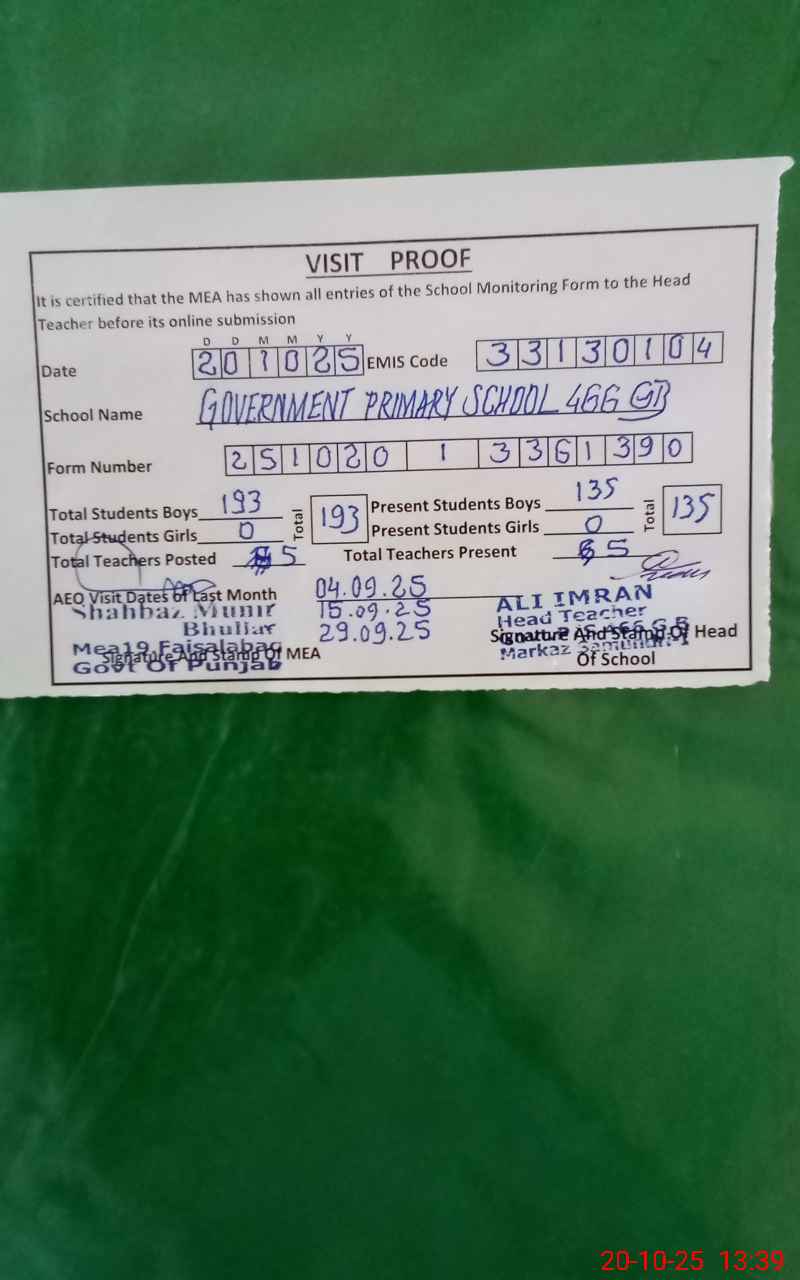 VISIT PROOF
It is certified that the MEA has shown all entries of the School Monitoring Form to the Head
Teacher before its online submission
D D M M Y Y
Date 201025 EMIS Code 33130104
School Name GOVERNMENT PRIMARY SCHOOL 466 GB
Form Number 251020 1 3361390
Total Students Boys 193 Total 193 Present Students Boys 135 Total 135
Total Students Girls 0 Present Students Girls 0
Total Teachers Posted 5 Total Teachers Present 5
AEO Visit Dates of Last Month 04.09.25
15.09.25
29.09.25
Shahbaz Munir
Bhullar
Mea19 Faisalabad
Govt Of Punjab
Signature And Stamp Of MEA
ALI IMRAN
Head Teacher
466 G.B
Markaz
Signature And Stamp Of Head
Of School
20-10-25 13:39